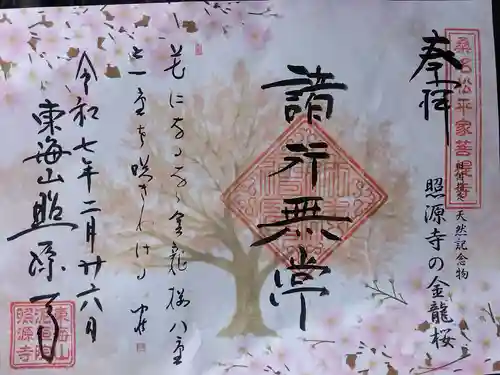 奉拝
桑名松平家菩提寺
県指定 天然記念物
照源寺の金龍桜
諸行無常
花になる
金龍桜八重
と一重を咲きわけ
令和七年二月廿六日
東海山照源寺
東海山
照源寺